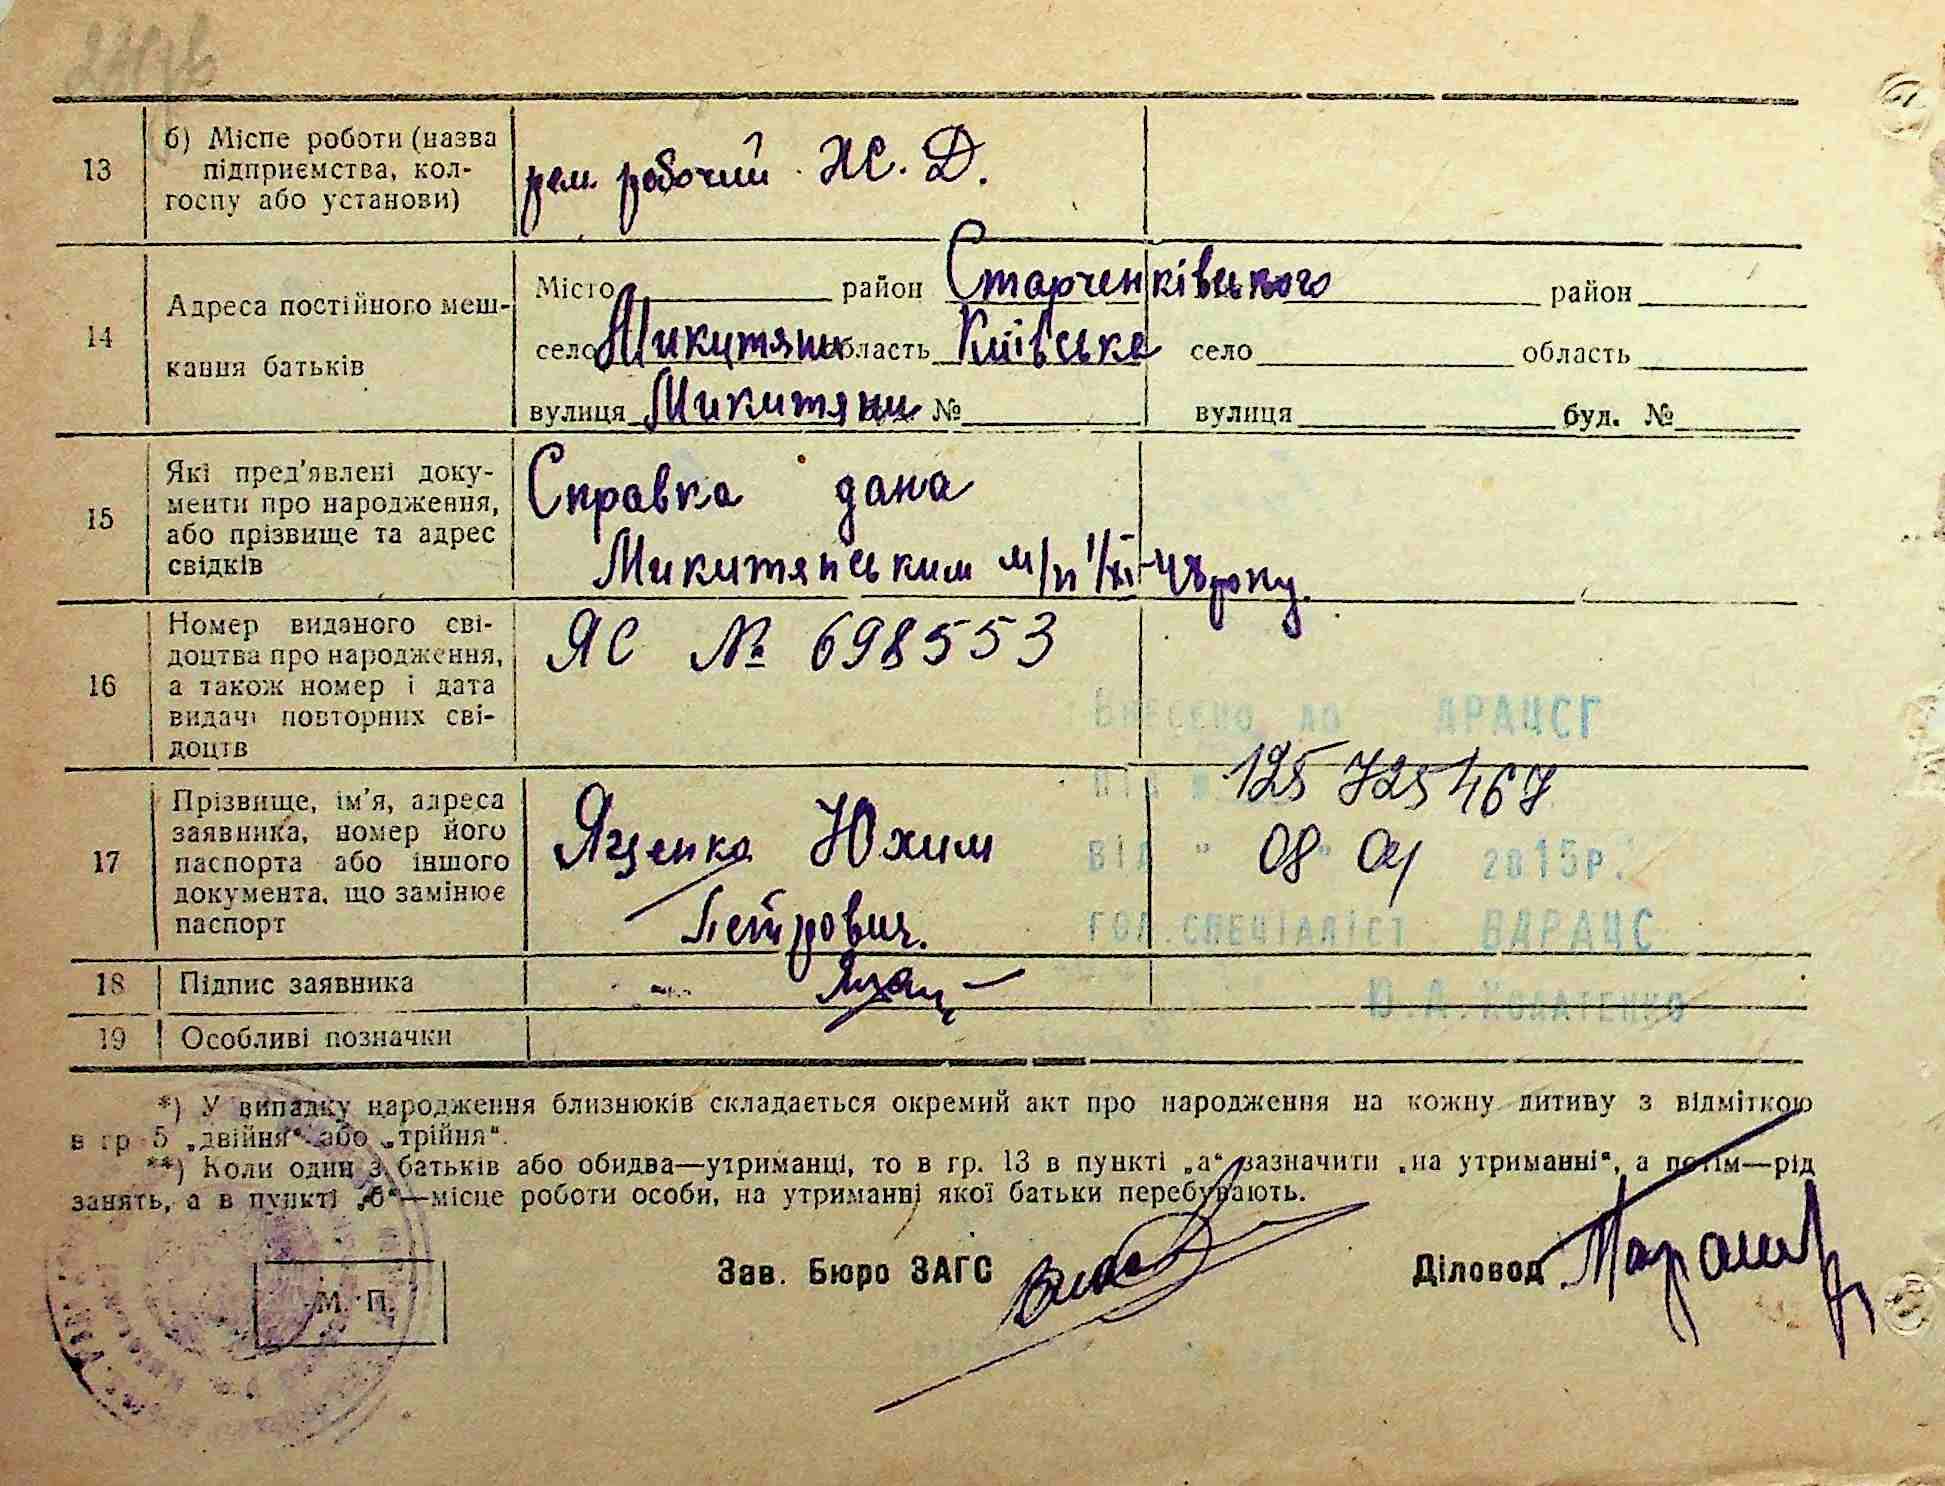 13
б) Місце роботи (назва
підприємства, кол-
госпу або установи)
рем. робочий Ж. Д.
14
Адреса постійного меш-
кання батьків
Місто район Старченківського район
село Микитяни область Київська село область
вулиця Микитяни № вулиця буд. №
15
Які пред'явлені доку-
менти про народження,
або прізвище та адрес
свідків
Справка дана
Микитянським м/п 1/XI-48 року.
16
Номер виданого сві-
доцтва про народження,
а також номер і дата
видачі повторних сві-
доцтв
ЯС № 698553
Внесено до ДРАЦСГ
під № 125 725 467
17
Прізвище, ім'я, адреса
заявника, номер його
паспорта або іншого
документа, що замінює
паспорт
Яценко Юхим
Петрович.
від " 08 " 04 2015р.
гол. спеціаліст ВДРАЦС
18
Підпис заявника
19
Особливі позначки
*) У випадку народження близнюків складається окремий акт про народження на кожну дитину з відміткою
в гр 5 „двійня“ або „трійня“.
**) Коли один з батьків або обидва—утриманці, то в гр. 13 в пункті „а“ зазначити „на утриманні“, а потім—рід
занять, а в пункті „б“—місце роботи особи, на утриманні якої батьки перебувають.
Зав. Бюро ЗАГС
Діловод
М. П.